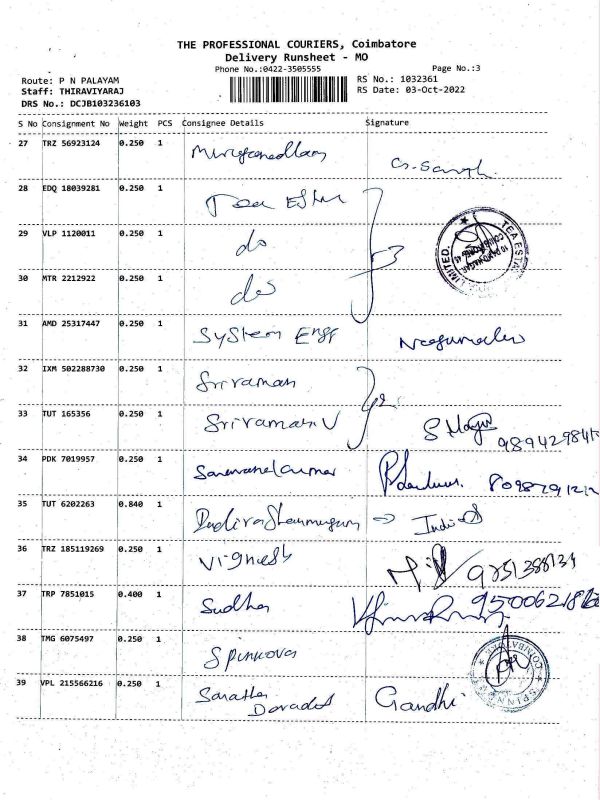 THE PROFESSIONAL COURIERS, Coimbatore
Delivery Runsheet - MO
Phone No.:0422-3505555
Page No.:3
Route: P N PALAYAM
RS No.: 1032361
Staff: THIRAVIYARAJ
RS Date: 03-Oct-2022
DRS No.: DCJB103236103
S No Consignment No Weight PCS Consignee Details Signature
27 TRZ 56923124 0.250 1
28 EDQ 18039281 0.250 1
29 VLP 1120011 0.250 1 do
30 MTR 2212922 0.250 1 do
31 AMD 25317447 0.250 1 System Engg
32 IXM 502288730 0.250 1 Sriraman
33 TUT 165356 0.250 1 Sriraman V
34 PDK 7019957 0.250 1 Saravanakumar
35 TUT 6202263 0.840 1
36 TRZ 185119269 0.250 1 Vignesh
37 TRP 7851015 0.400 1 Sudha
38 TMG 6075497 0.250 1 Spinnova
39 VPL 215566216 0.250 1 Gandhi